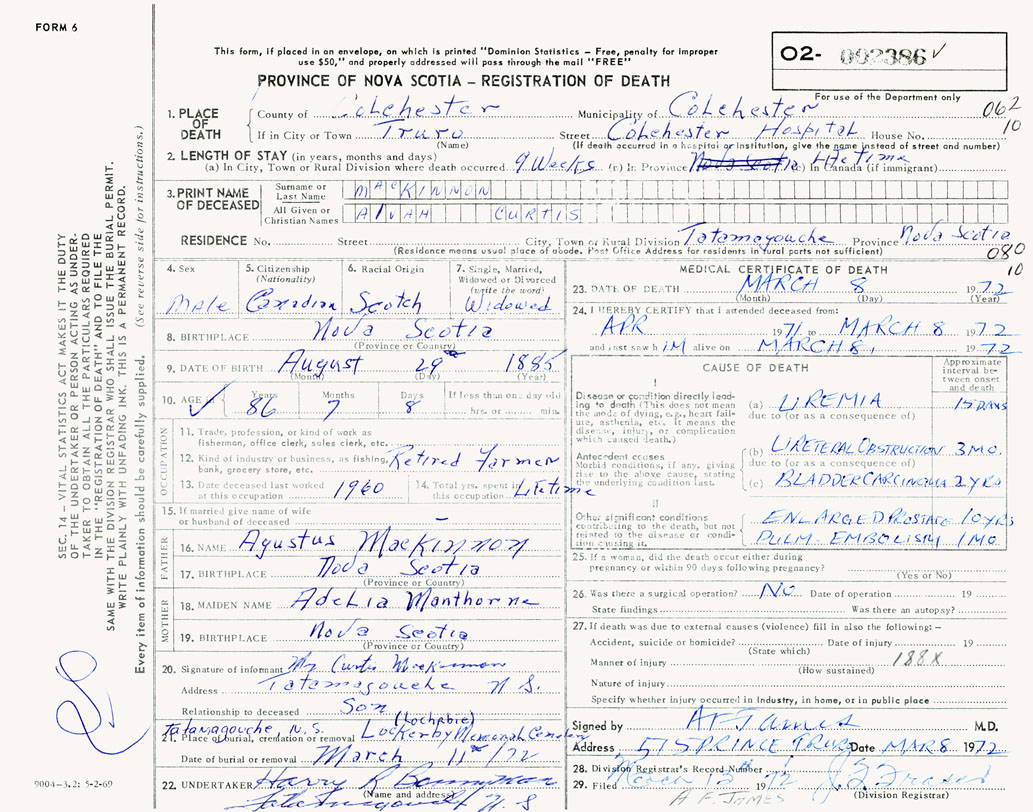 FORM 6
This form, if placed in an envelope, on which is printed "Dominion Statistics – Free, penalty for improper
use $50," and properly addressed will pass through the mail "FREE"
O2- 002386
PROVINCE OF NOVA SCOTIA – REGISTRATION OF DEATH
For use of the Department only
062
10
1. PLACE OF DEATH
County of Colchester Municipality of Colchester
If in City or Town Truro Street Colchester Hospital House No.
(Name) (If death occurred in a hospital or institution, give the name instead of street and number)
2. LENGTH OF STAY (in years, months and days)
(a) In City, Town or Rural Division where death occurred 9 Weeks (c) In Province Nova Scotia (c) In Canada (if immigrant) Lifetime
3. PRINT NAME OF DECEASED
Surname or Last Name MACKINNON
All Given or Christian Names ALVAH CURTIS
RESIDENCE No. Street City, Town or Rural Division Tatamagouche Province Nova Scotia
(Residence means usual place of abode. Post Office Address for residents in rural parts not sufficient)
080
10
4. Sex 5. Citizenship (Nationality) 6. Racial Origin 7. Single, Married, Widowed or Divorced (write the word)
Male Canadian Scotch Widowed
8. BIRTHPLACE Nova Scotia
(Province or Country)
9. DATE OF BIRTH August 29 1885
(Month) (Day) (Year)
10. AGE in Years Months Days If less than one day old
86 7 8 hrs. or min.
OCCUPATION
11. Trade, profession, or kind of work as
fisherman, office clerk, sales clerk, etc.
12. Kind of industry or business, as fishing, Retired Farmer
bank, grocery store, etc.
13. Date deceased last worked at this occupation 1960
14. Total yrs. spent in this occupation Lifetime
15. If married give name of wife
or husband of deceased –
FATHER
16. NAME Agustus MacKinnon
17. BIRTHPLACE Nova Scotia
(Province or Country)
MOTHER
18. MAIDEN NAME Adelia Manthorne
19. BIRTHPLACE Nova Scotia
(Province or Country)
20. Signature of informant Mr Curtis MacKinnon
Address Tatamagouche N.S.
Relationship to deceased Son
(Lochabie)
Tatamagouche, N.S. Lockerby Memorial
21. Place of burial, cremation or removal
Date of burial or removal March 11 /72
22. UNDERTAKER Harry R
(Name and address)
Tatamagouche N.S
MEDICAL CERTIFICATE OF DEATH
23. DATE OF DEATH MARCH 8 1972
(Month) (Day) (Year)
24. I HEREBY CERTIFY that I attended deceased from:
APR 1971 to MARCH 8 1972
and last saw him alive on MARCH 8, 1972
CAUSE OF DEATH
Approximate interval between onset and death
I
Disease or condition directly leading to death (This does not mean the mode of dying, e.g., heart failure, asthenia, etc. It means the disease, injury, or complication which caused death.)
(a) UREMIA 15 DAYS
due to (or as a consequence of)
Antecedent causes
Morbid conditions, if any, giving rise to the above cause, stating the underlying condition last.
(b) URETERAL OBSTRUCTION 3 MO.
due to (or as a consequence of)
(c) BLADDER CARCINOMA 2 YRS
II
Other significant conditions contributing to the death, but not related to the disease or condition causing it.
ENLARGED PROSTATE 10 YRS
PULM. EMBOLISM 1 MO.
25. If a woman, did the death occur either during
pregnancy or within 90 days following pregnancy?
(Yes or No)
26. Was there a surgical operation? No Date of operation 19
State findings Was there an autopsy?
27. If death was due to external causes (violence) fill in also the following: –
Accident, suicide or homicide? Date of injury 19
(State which)
Manner of injury 188X
(How sustained)
Nature of injury
Specify whether injury occurred in industry, in home, or in public place
Signed by A F James M.D.
Address 575 PRINCE TRURO Date MAR 8 1972
28. Division Registrar's Record Number
29. Filed 1972 J Fraser
A F. JAMES (Division Registrar)
SEC. 14 – VITAL STATISTICS ACT MAKES IT THE DUTY
OF THE UNDERTAKER OR PERSON ACTING AS UNDER-
TAKER TO OBTAIN ALL THE PARTICULARS REQUIRED
IN THE "REGISTRATION OF DEATH" AND TO FILE THE
SAME WITH THE DIVISION REGISTRAR WHO SHALL ISSUE THE BURIAL PERMIT.
WRITE PLAINLY WITH UNFADING INK. THIS IS A PERMANENT RECORD.
Every item of information should be carefully supplied. (See reverse side for instructions.)
9004-3.2: 5-2-69